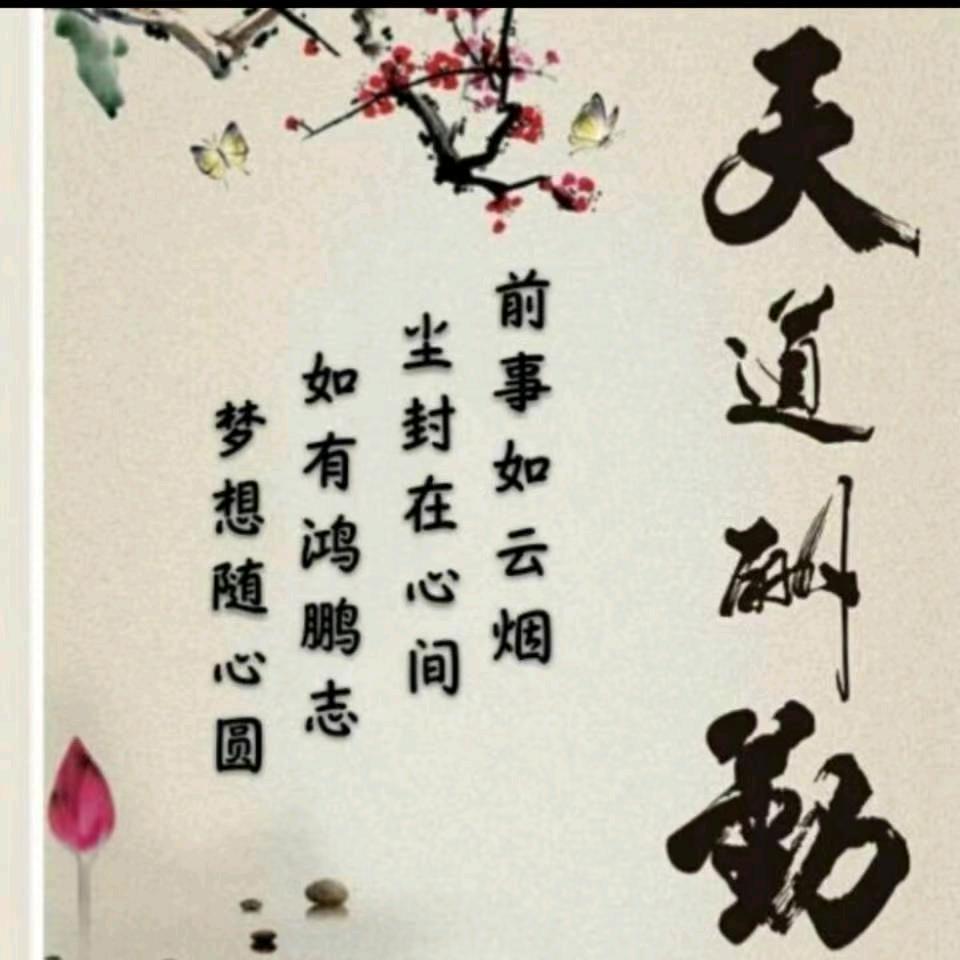 天道酬勤
前事如云烟
尘封在心间
如有鸿鹏志
梦想随心圆